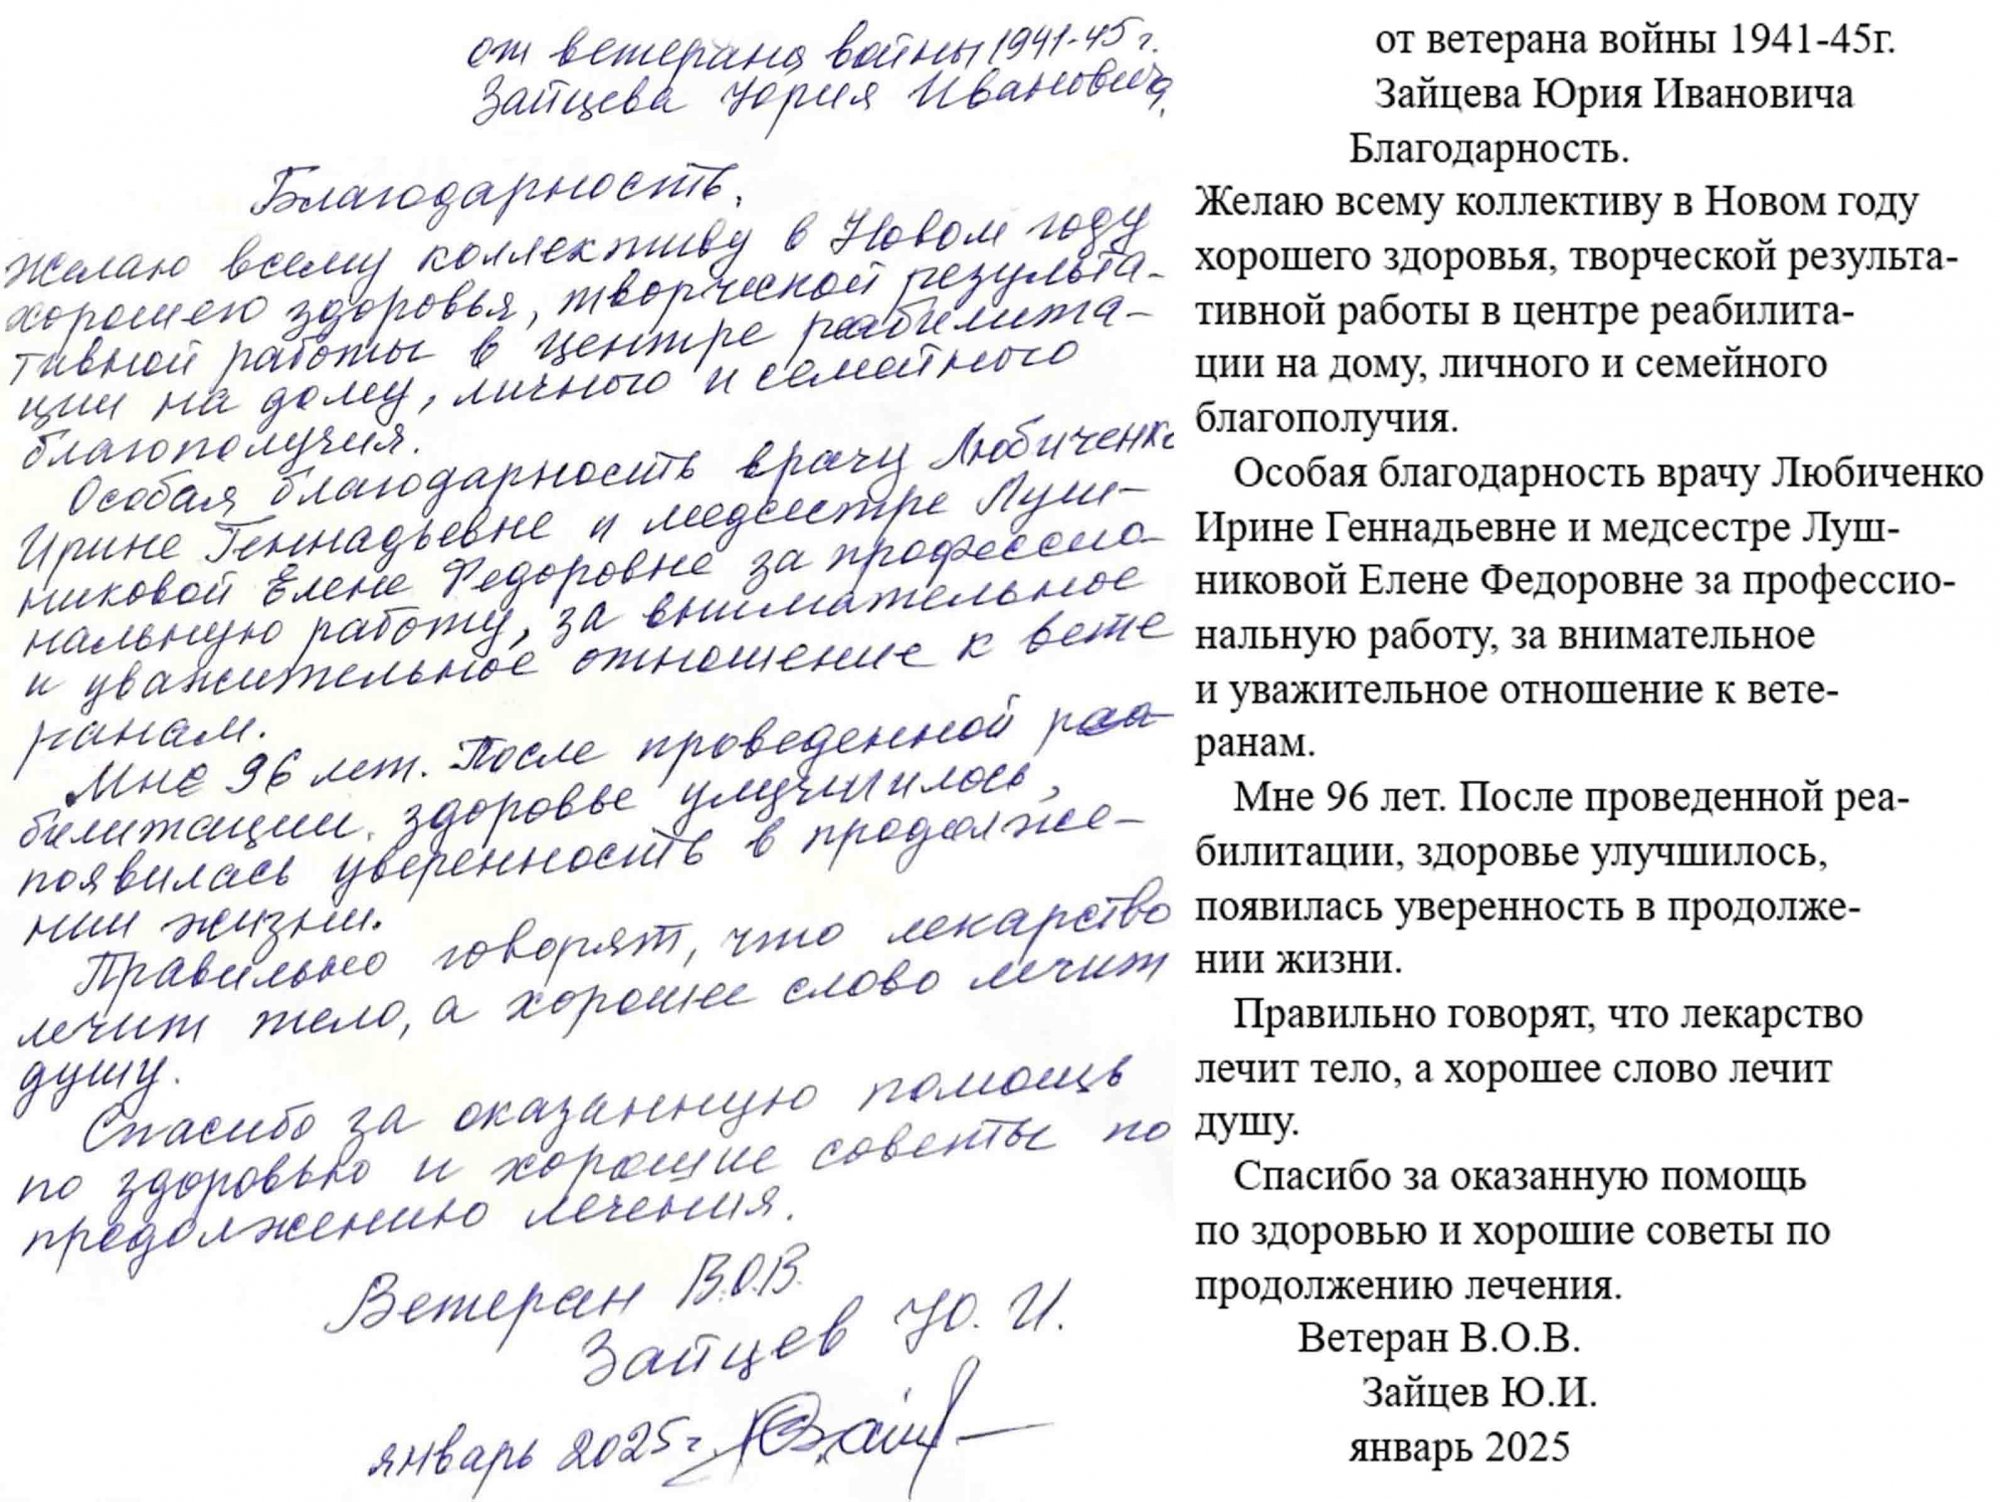 от ветерана войны 1941-45 г.
Зайцева Юрия Ивановича.
Благодарность.
Желаю всему коллективу в Новом году
хорошего здоровья, творческой результа-
тивной работы в центре реабилита-
ции на дому, личного и семейного
благополучия.
Особая благодарность врачу Любиченко
Ирине Геннадьевне и медсестре Луш-
никовой Елене Федоровне за профессио-
нальную работу, за внимательное
и уважительное отношение к вете
ранам.
Мне 96 лет. После проведенной реа-
билитации, здоровье улучшилось,
появилась уверенность в продолже-
нии жизни.
Правильно говорят, что лекарство
лечит тело, а хорошее слово лечит
душу.
Спасибо за оказанную помощь
по здоровью и хорошие советы по
продолжению лечения.
Ветеран В.О.В.
Зайцев Ю. И.
январь 2025 г
от ветерана войны 1941-45г.
Зайцева Юрия Ивановича
Благодарность.
Желаю всему коллективу в Новом году
хорошего здоровья, творческой результа-
тивной работы в центре реабилита-
ции на дому, личного и семейного
благополучия.
Особая благодарность врачу Любиченко
Ирине Геннадьевне и медсестре Луш-
никовой Елене Федоровне за профессио-
нальную работу, за внимательное
и уважительное отношение к вете-
ранам.
Мне 96 лет. После проведенной реа-
билитации, здоровье улучшилось,
появилась уверенность в продолже-
нии жизни.
Правильно говорят, что лекарство
лечит тело, а хорошее слово лечит
душу.
Спасибо за оказанную помощь
по здоровью и хорошие советы по
продолжению лечения.
Ветеран В.О.В.
Зайцев Ю.И.
январь 2025